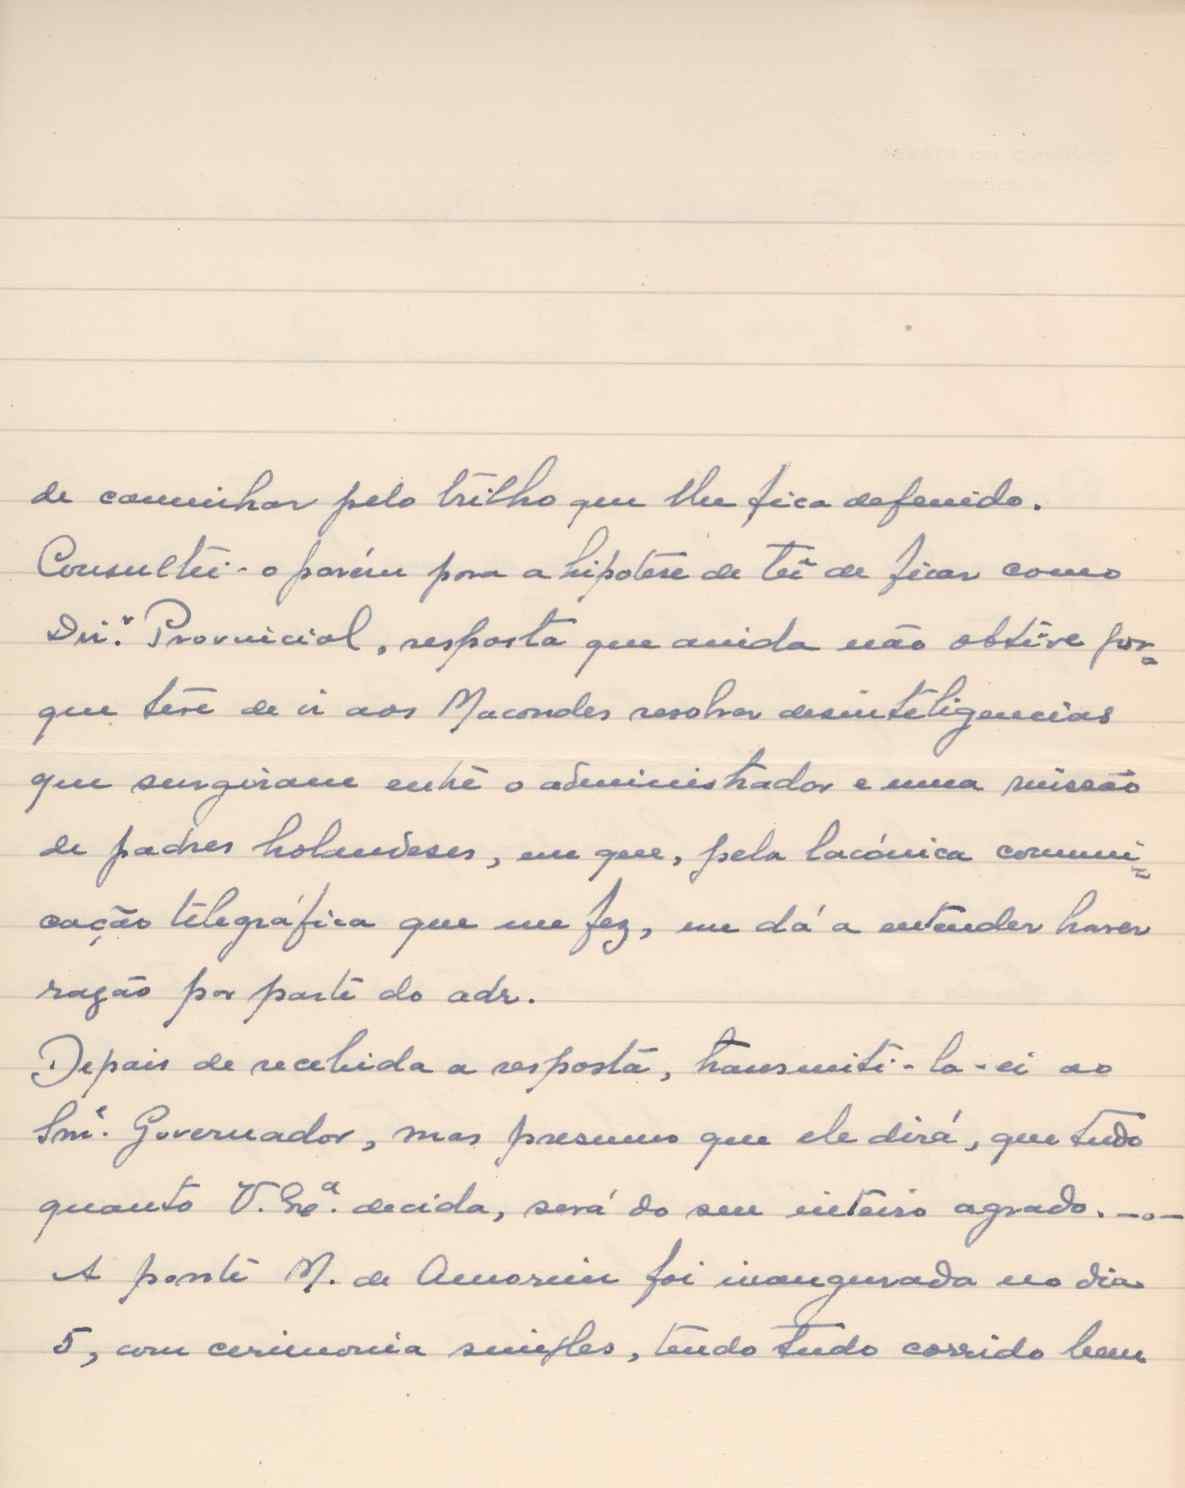 de caminhar pelo trilho que lhe fica defenido.
Consultei-o porém para a hipotese de ter de ficar como
Dir.r Provincial, resposta que ainda não obtive por=
que teve de ir aos Macondes resolver desinteligencias
que surgiram entre o administrador e uma missão
de padres holandeses, em que, pela lacónica comuni=
cação telegráfica que me fez, me dá a entender haver
razão por parte do adr.
Depois de recebida a resposta, transmiti-la-ei ao
Snr. Governador, mas presumo que ele dirá, que tudo
quanto V. Exª. decida, será do seu inteiro agrado. —o—
A ponte M. de Amorim foi inaugurada no dia
5, com cerimonia simples, tendo tudo corrido bem